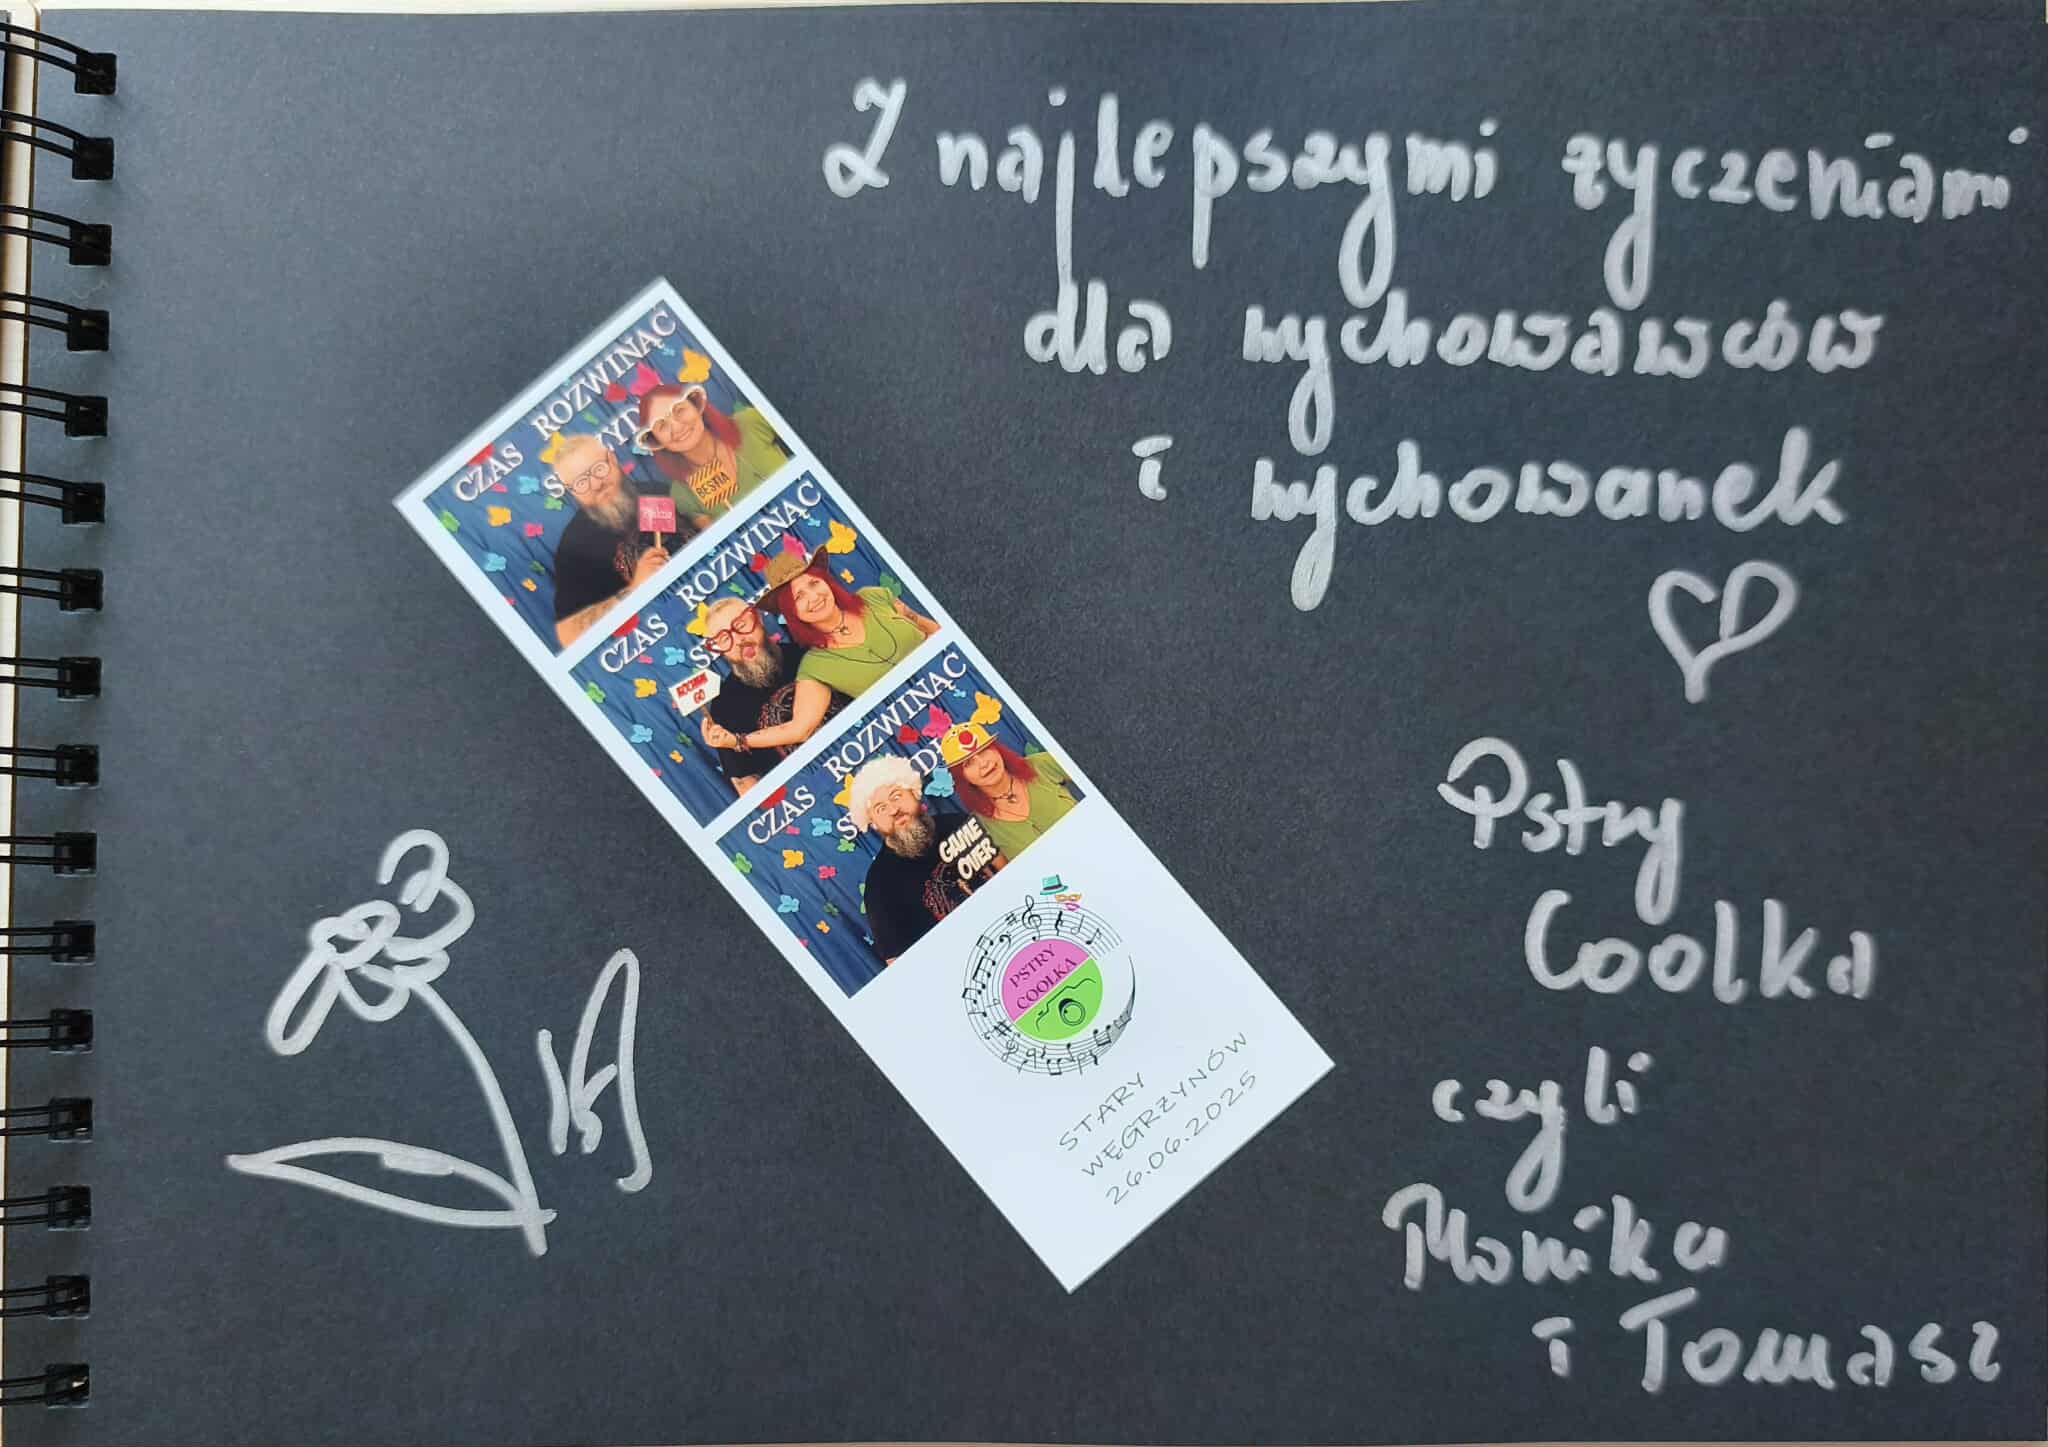 Z najlepszymi życzeniami
dla wychowawców
i wychowanek
Pstry
Coolka
czyli
Monika
i Tomasz
CZAS ROZWINĄĆ
BESTIA
CZAS ROZWINĄĆ
GO
CZAS ROZWINĄĆ
GAME
OVER
PSTRY
COOLKA
STARY
WĘGRZYNÓW
26.06.2025